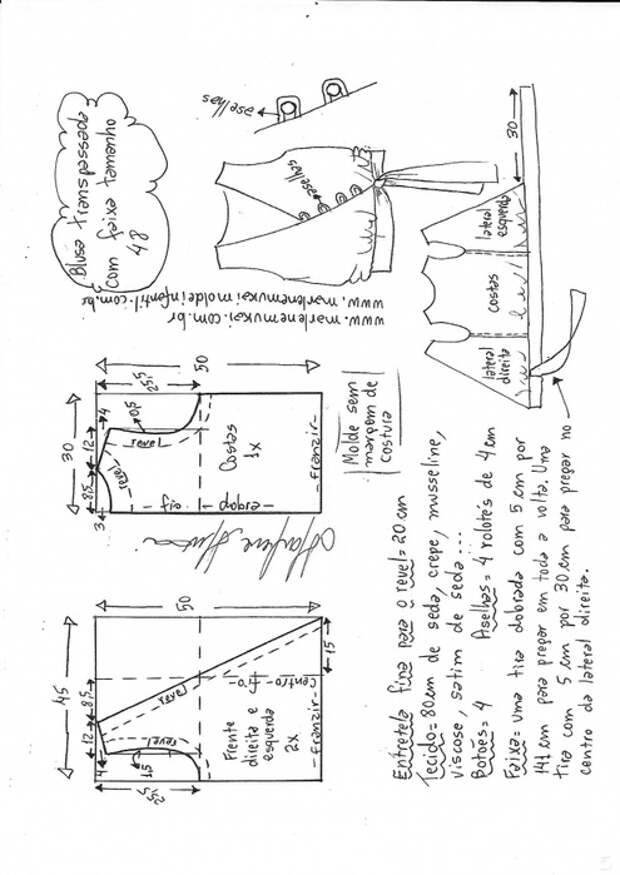 Blusa transpassada
com faixa tamanho
48
www.marlenemukai.com.br
www.marlenemukaimoldeinfantil.com.br
aselhas
aselhas
30
lateral
direita
costas
lateral
esquerda
45
12
8,5
4
25,5
revel
1,5
revel
Frente
direita e
esquerda
2x
centro - fio
franzir
15
50
30
3
8,5
12
4
25,5
revel
revel
0,5
Costas
1x
dobra
fio
franzir
50
Molde sem
margem de
costura
Entretela fina para o revel = 20 cm
Tecido = 80 cm de seda, crepe, musseline,
viscose, satim de seda ...
Botões = 4 Aselhas = 4 rolotés de 4 cm
Faixa = uma tira dobrada com 5 cm por
141 cm para pregar em toda a volta. Uma
tira com 5 cm por 30 cm para pregar no
centro da lateral direita.
5